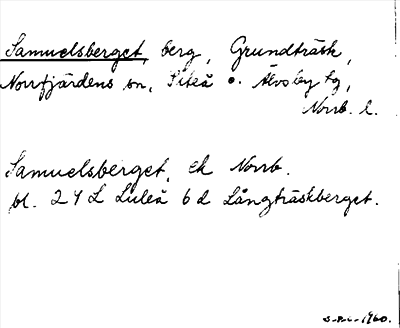 Samuelsberget, berg, Grundträsk,
Norrfjärdens sn, Piteå o. Älvsby tg,
Norrb. l.
Samuelsberget, ek Norrb.
bl. 24 L Luleå 6 d Långträskberget.
1960.